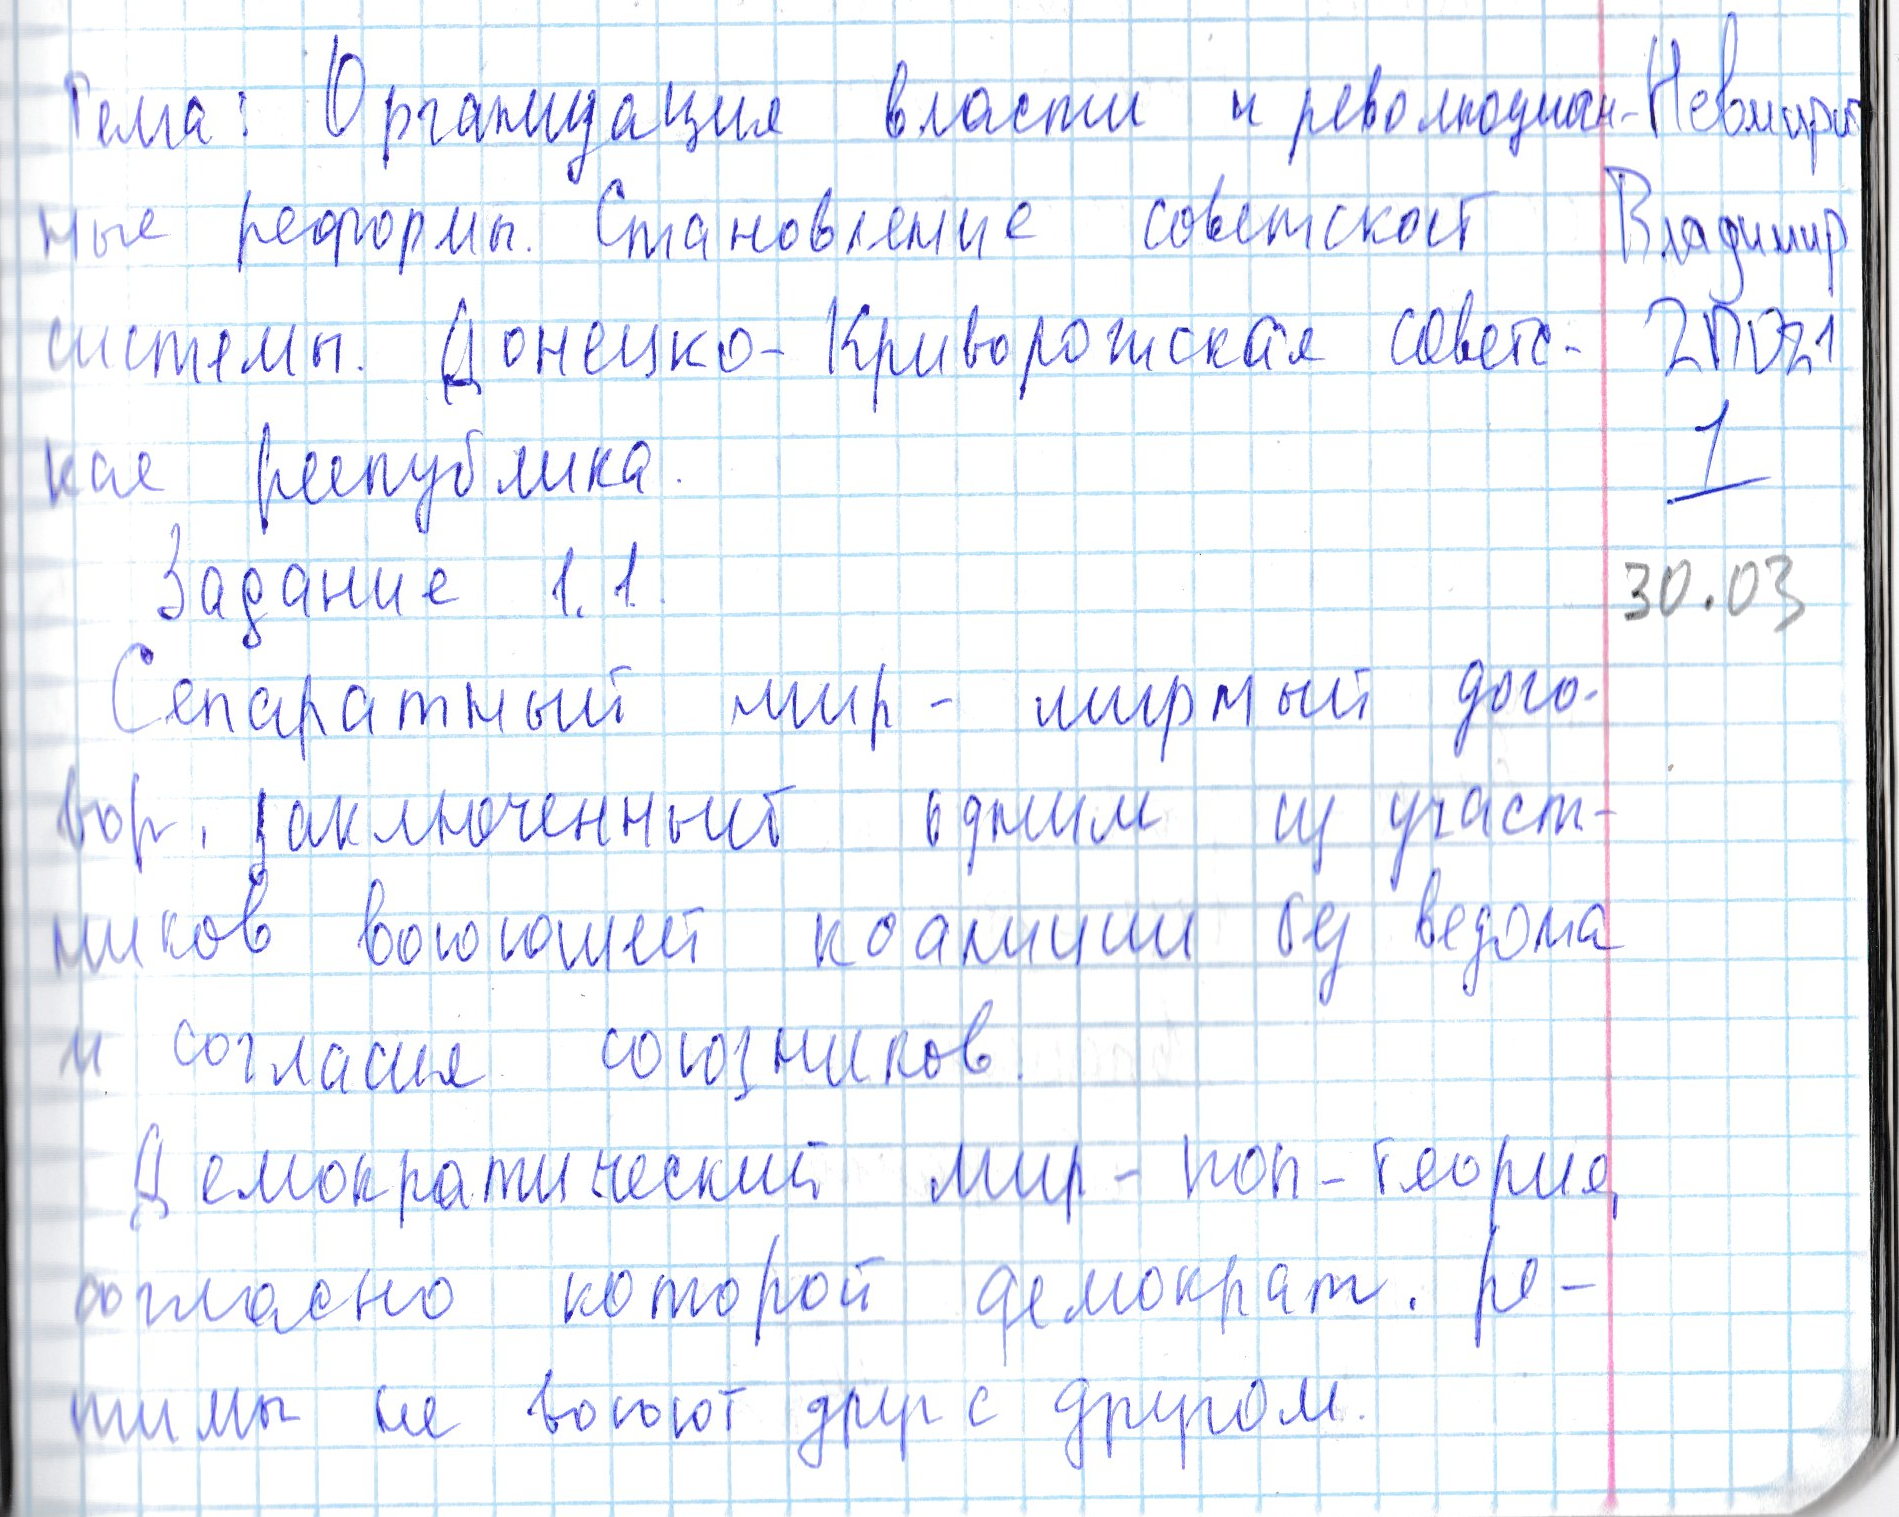 Тема: Организация власти и революцион-
ные реформы. Становление советской
системы. Донецко-Криворожская советс-
кая республика.
Владимир
1
30.03
Задание 1.1.
Сепаратный мир - мирный дого-
вор, заключенный одним из участ-
ников воюющей коалиции без ведома
и согласия союзников.
Демократический мир - поп-теория,
согласно которой демократ. ре-
жимы не воюют друг с другом.